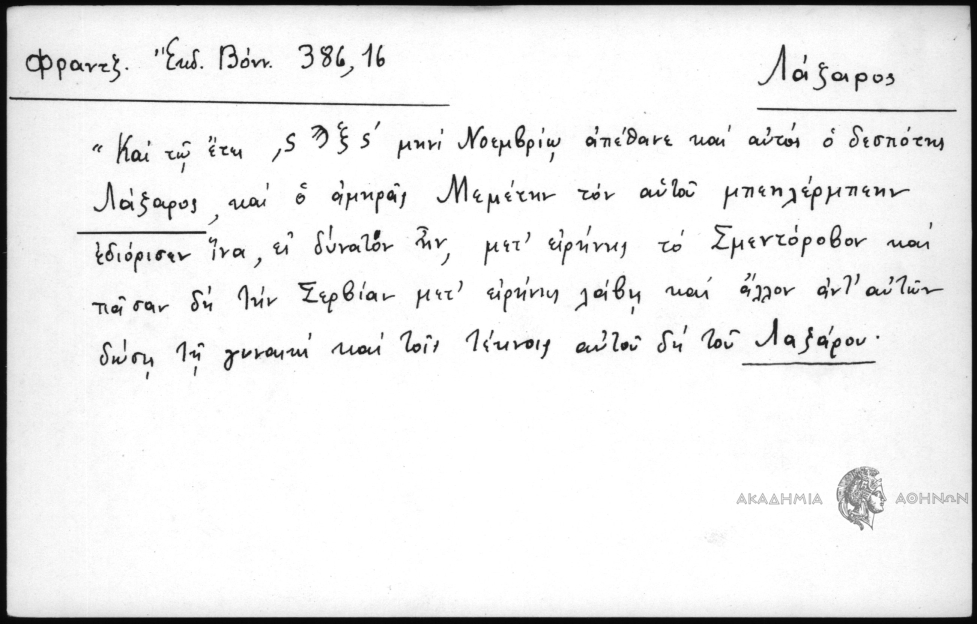 Φραντζ. Ἔκδ. Βόνν. 386,16
Λάζαρος
"Καί τῷ ἔτει ͵ϛϠξϛ´ μηνί Νοεμβρίῳ ἀπέθανε καί αὐτός ὁ δεσπότης
Λάζαρος, καί ὁ ἀμηρᾶς Μεμέτην τόν αὑτοῦ μπεηλέρμπεην
ἐδιόρισεν ἵνα, εἰ δύνατόν ἦν, μετ' εἰρήνης τό Σμεντόροβον καί
πᾶσαν δή τήν Σερβίαν μετ' εἰρήνης λάβῃ καί ἄλλον ἀντ' αὐτῶν
δώσῃ τῇ γυναικί καί τοῖς τέκνοις αὐτοῦ δή τοῦ Λαζάρου.
ΑΚΑΔΗΜΙΑ ΑΘΗΝΩΝ